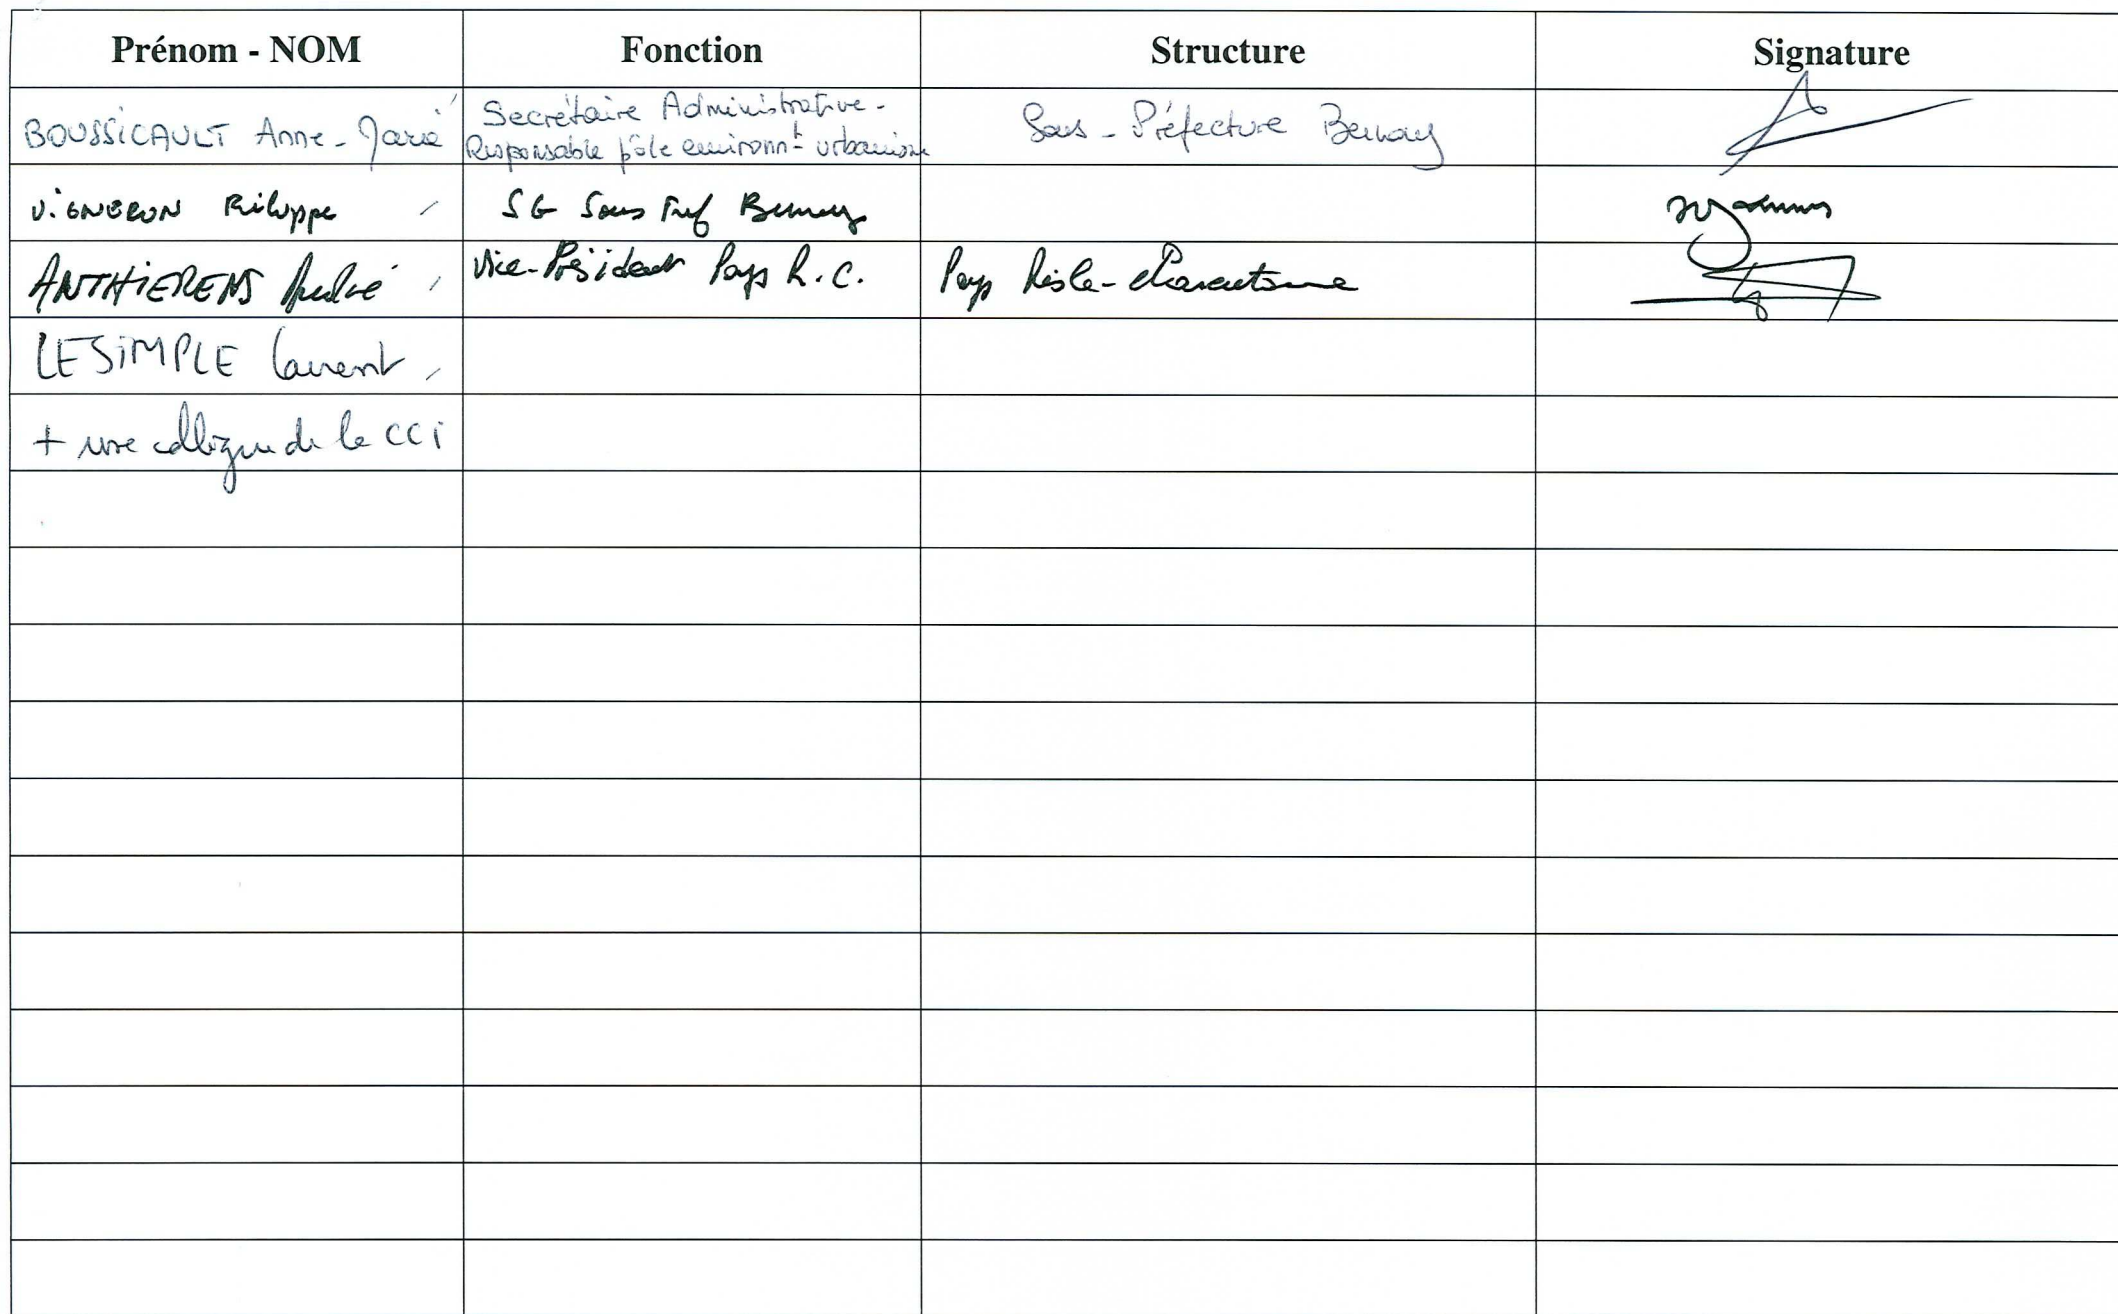 Prénom - NOM Fonction Structure Signature
BOUSSICAULT Anne-Marie Secrétaire Administrative - Sous-Préfecture Bernay
Responsable pôle environnt urbanisme
ViGNERON Philippe SG Sous Pref Bernay
ANTHiERENS André Vice-Président Pays R.C. Pays Risle-Charentonne
LESiMPLE Laurent
+ une collègue de la CCi